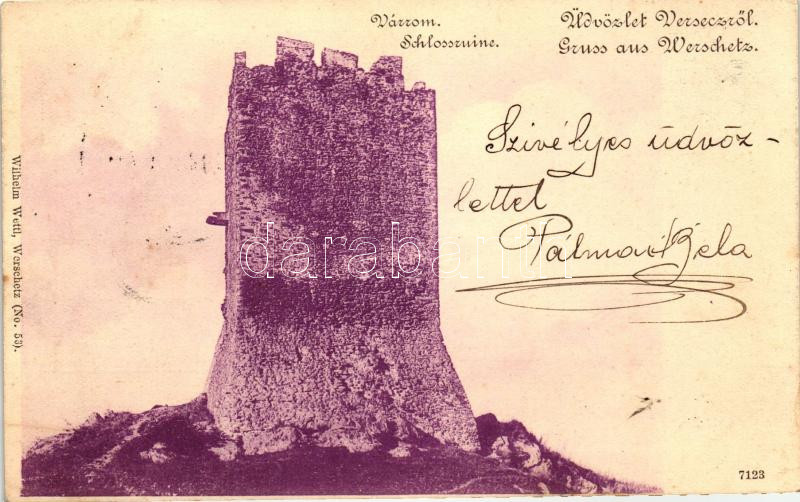 Várrom.
Schlossruine.
Üdvözlet Verseczről.
Gruss aus Werschetz.
Szivélyes üdvöz-
lettel
Pálmai Béla
darabanth
Wilhelm Wettl, Werschetz (No. 53).
7123